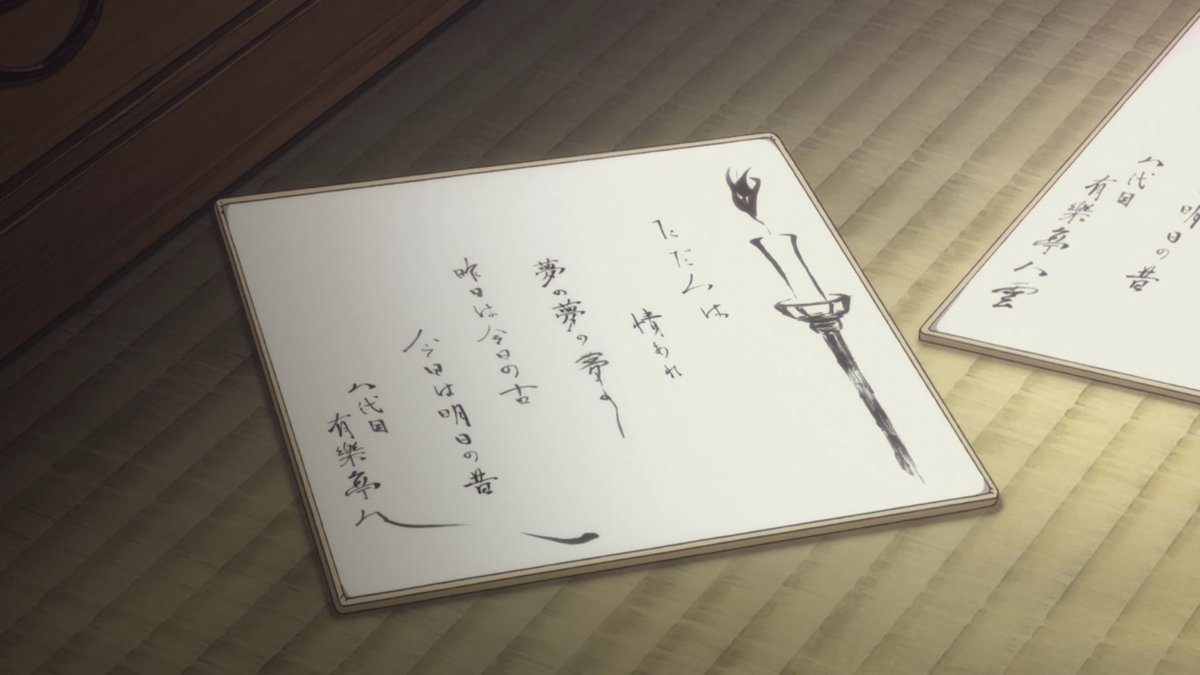 ただ人は
情あれ
夢の夢の夢の
昨日は今日の古
今日は明日の昔
八代目
有樂亭八
明日の昔
八代目
有樂亭八雲